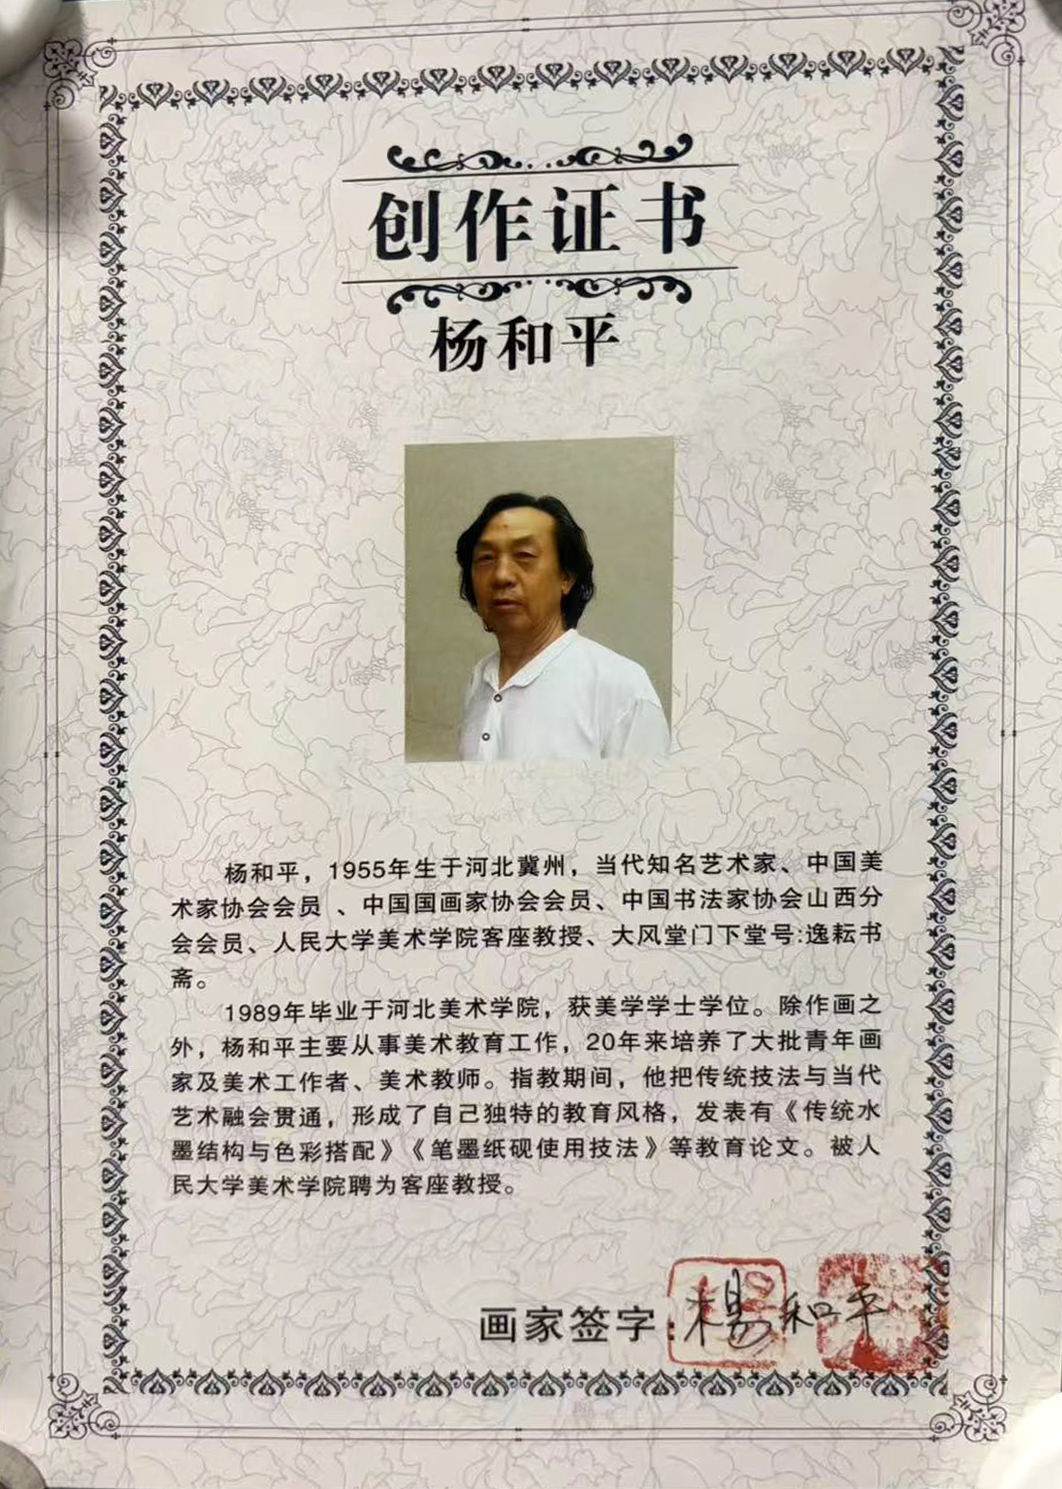 创作证书
杨和平
杨和平，1955年生于河北冀州，当代知名艺术家、中国美
术家协会会员 、中国国画家协会会员、中国书法家协会山西分
会会员、人民大学美术学院客座教授、大风堂门下堂号:逸耘书
斋。
1989年毕业于河北美术学院，获美学学士学位。除作画之
外，杨和平主要从事美术教育工作，20年来培养了大批青年画
家及美术工作者、美术教师。指教期间，他把传统技法与当代
艺术融会贯通，形成了自己独特的教育风格，发表有《传统水
墨结构与色彩搭配》《笔墨纸砚使用技法》等教育论文。被人
民大学美术学院聘为客座教授。
画家签字:楊和平